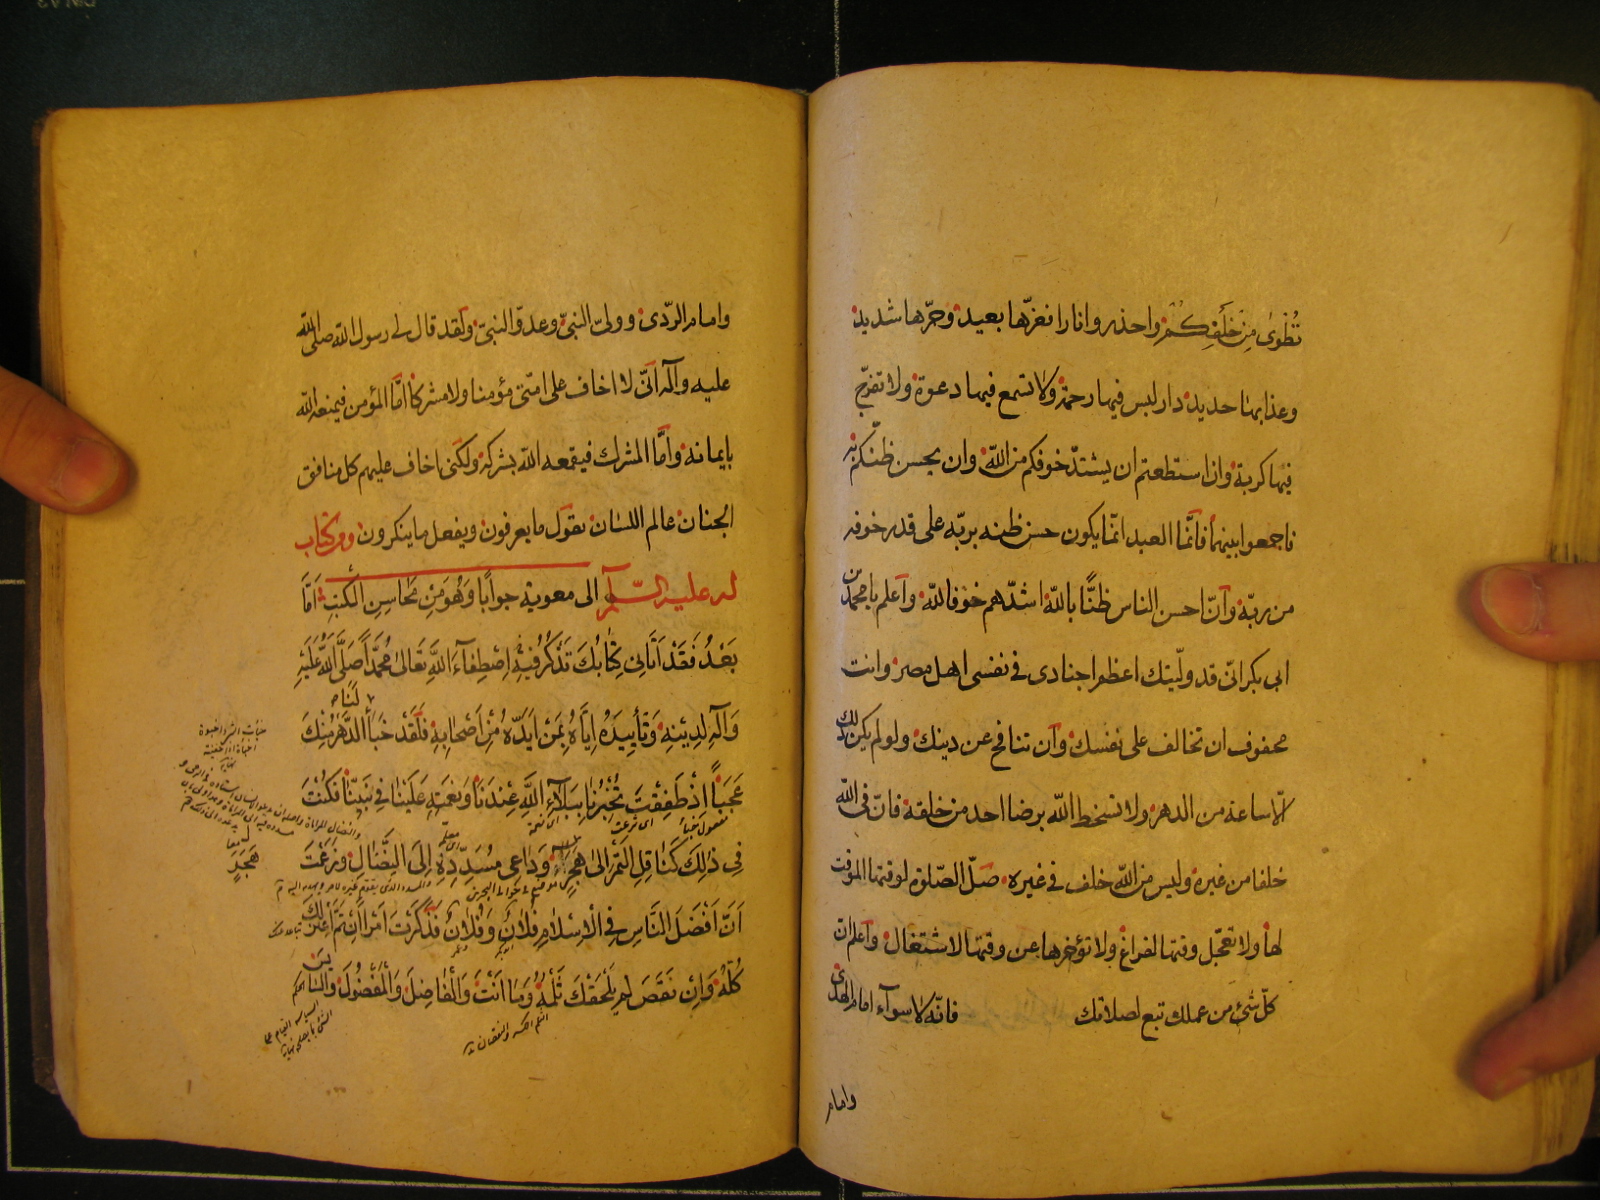 تُطْوىٰ مِنْ خَلْفِكُمْ واحذروا نارا قعرها بعيد وحرّها شديد
وعذابها حديد دار ليس فيها رحمة ولا تسمع فيها دعوة ولا تفرّج
فيها كربة وان استطعتم ان يشتدّ خوفكم من الله وان يحسن ظنّكم به
فاجمعوا بينهما فانّما العبد انّما يكون حسن ظنه بربّه على قدر خوفه
من ربّه وانّ احسن الناس ظنًّا بالله اشدّهم خوفا لله واعلم يا محمد بن
ابى بكر انّى قد ولّيتك اعظم اجنادى فى نفسى اهل مصر وانت
محقوق ان تخالف على نفسك وان تنافح عن دينك ولو لم يكن لك
الّا ساعة من الدهر ولا تسخط الله برضا احد من خلقه فانّ فى الله
خلفا من غيره وليس من الله خلف فى غيره صلّ الصّلوة لوقتها الموقت
لها ولا تعجّل وقتها لفراغ ولا تؤخرها عن وقتها لاشتغال واعلم ان
كلّ شئ من عملك تبع لصلاتك فانّه لا سوآء امام الهدى
وامام
وامام الردى وولىّ النبىّ وعدوّ النبىّ ولقد قال لى رسول الله صلى الله
عليه وآله انّى لا اخاف على امّتى مؤمنا ولا مشركا امّا المؤمن فيمنعه الله
بايمانه وامّا المشرك فيقمعه الله بشركه ولكنى اخاف عليهم كل منافق
الجنان عالم اللسان يقول ما يعرفون ويفعل ما ينكرون ومن كتاب
له عليه السّلم الى معوية جوابًا وَهُوَ مِنْ مَحَاسِنِ الْكُتُبِ اَمَّا
بَعْدُ فَقَدْ اَتَانِى كِتٰابُكَ تَذْكُرُ فِيهِ اِصْطِفٰآءَ اللهِ تَعَالىٰ مُحَمَّداً صَلَّى اللهُ عَلَيْهِ
وَآلِهِ لِدِينِهِ وَتَأْيِيدَهُ اِيَّاهُ بِمَنْ اَيَّدَهُ مِنْ اَصْحَابِهِ فَلَقَدْ خَبَأَ لَنَا الدَّهْرُ مِنْكَ
عَجَبًا اِذْ طَفِقْتَ تُخْبِرُنٰا بِبَلٰآءِ اللهِ عِنْدَنَا وَنِعْمَتِهِ عَلَيْنٰا فِى نَبِيِّنٰا فَكُنْتَ
فِى ذٰلِكَ كَنٰاقِلِ التَّمْرِ اِلىٰ هَجَرٍ وَدٰاعِى مُسَدِّدِهِ اِلَى النِّضٰالِ وَزَعَمْتَ
اَنَّ اَفْضَلَ النَّاسِ فِى الْاِسْلٰامِ فُلٰانٌ وَفُلٰانٌ فَذَكَرْتَ اَمْرًا اِنْ تَمَّ اعْتَزَلَكَ
كُلُّهُ وَاِنْ نَقَصَ لَمْ يَلْحَقْكَ ثَلْمُهُ وَمٰا اَنْتَ وَالْفٰاضِلَ وَالْمَفْضُولَ وَالسّٰائِسَ
مفعول خبأ
اى شرعت
اى نعمة
هَجَرَ